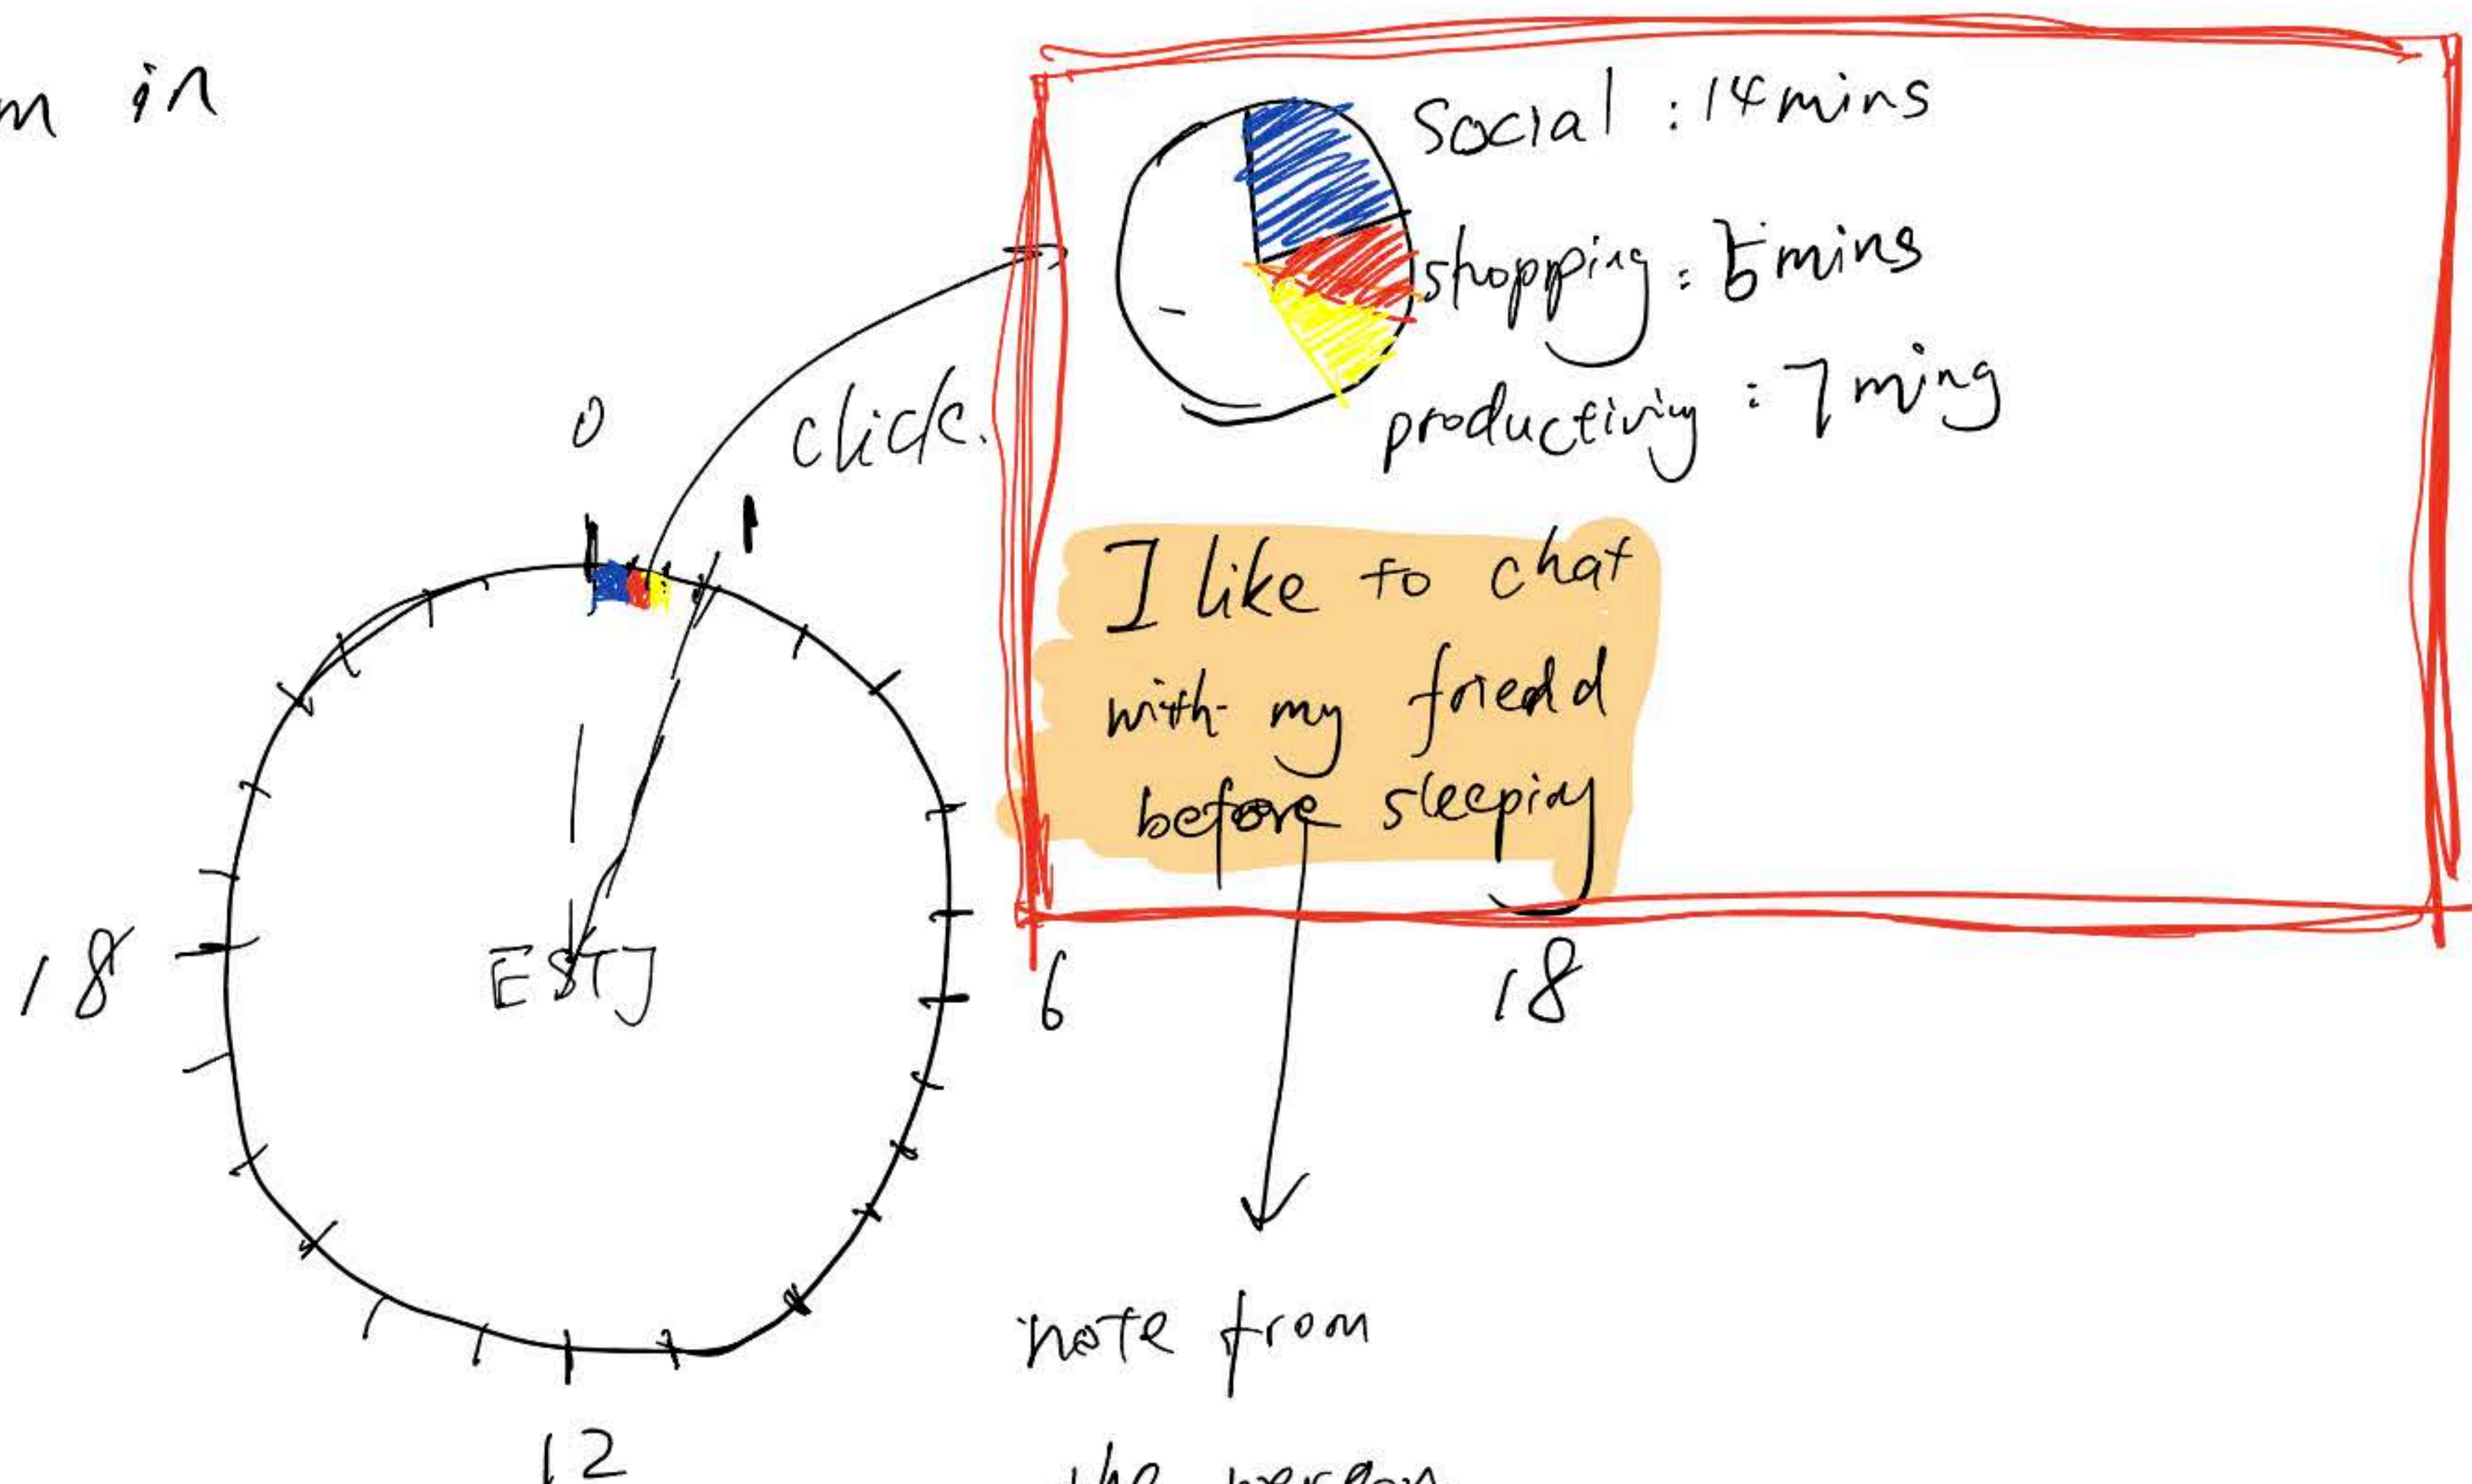 m in
Social : 14 mins
shopping : 5 mins
productiviy : 7 ming
0
click.
1
I like to chat
with my friedd
before sleeping
18
ESTJ
6
18
note from
12
the person